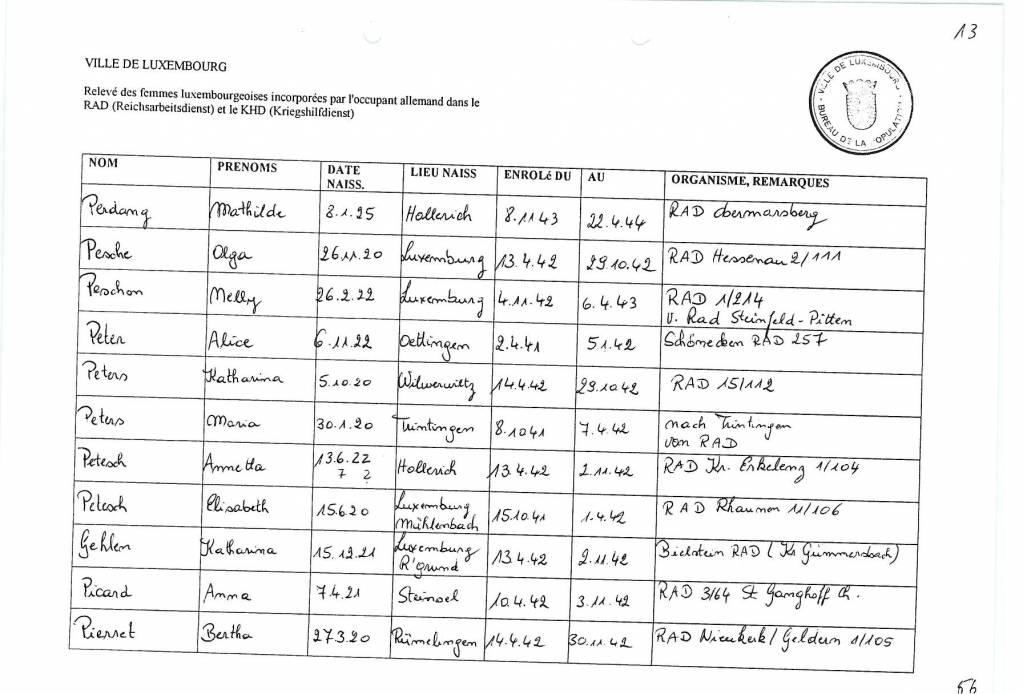 13
VILLE DE LUXEMBOURG
Relevé des femmes luxembourgeoises incorporées par l'occupant allemand dans le
RAD (Reichsarbeitsdienst) et le KHD (Kriegshilfdienst)
VILLE DE LUXEMBOURG
BUREAU DE LA POPULATION
NOM PRENOMS DATE NAISS. LIEU NAISS ENROLé DU AU ORGANISME, REMARQUES
Perdang Mathilde 8.1.25 Hollerich 8.11 43 22.4.44 RAD Obermarsberg
Pesche Olga 26.11.20 Luxemburg 13.4.42 29.10.42 RAD Hessenau 2/111
Peschon Melly 26.2.22 Luxemburg 4.11.42 6.4.43 RAD 1/214
v. Rad Steinfeld-Pitten
Peter Alice 6.11.22 Oettingen 2.4.41 5.1.42 Schönecken RAD 257
Peters Katharina 5.10.20 Wilwerwiltz 14.4.42 29.10.42 RAD 15/112
Peters Maria 30.1.20 Trintingen 8.10 41 7.4.42 nach Trintingen
von RAD
Petesch Annetta 13.6.22 Hollerich 13.4.42 2.11.42 RAD Kr. Erkelenz 1/104
7 ?
Petesch Elisabeth 15.6.20 Luxemburg
Mühlenbach 15.10.41 1.4.42 RAD Rhaunen 11/106
Gehlen Katharina 15.12.21 Luxemburg
R'grund 13.4.42 2.11.42 Bielstein RAD (Kr Gummersbach)
Picard Anna 7.4.21 Steinsel 10.4.42 3.11.42 RAD 3/64 St Ganghoff Ch.
Pierret Bertha 27.3.20 Rümelingen 14.4.42 30.11.42 RAD Nieukerk/Geldern 1/105
56